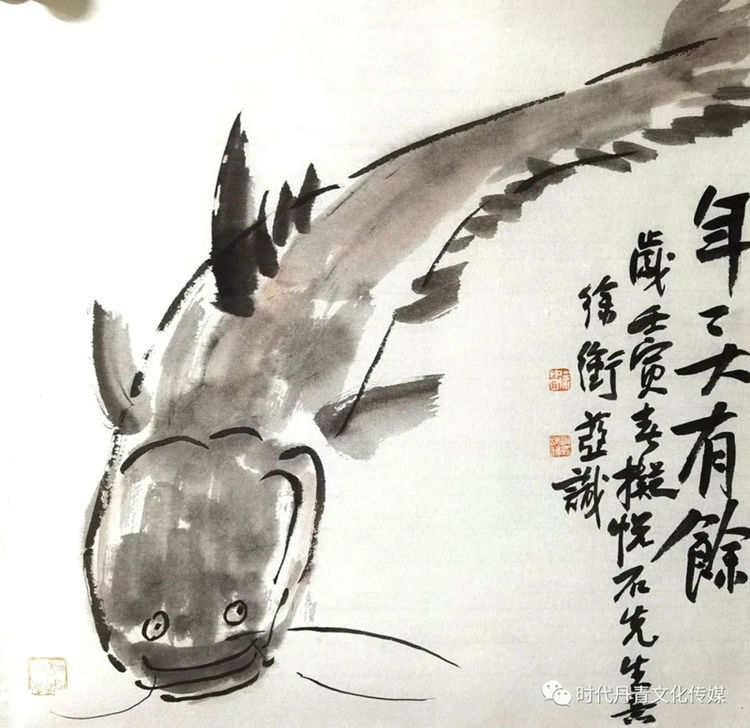 年々大有餘
歲壬寅春擬悅石先生意
徐衝並識
时代丹青文化传媒